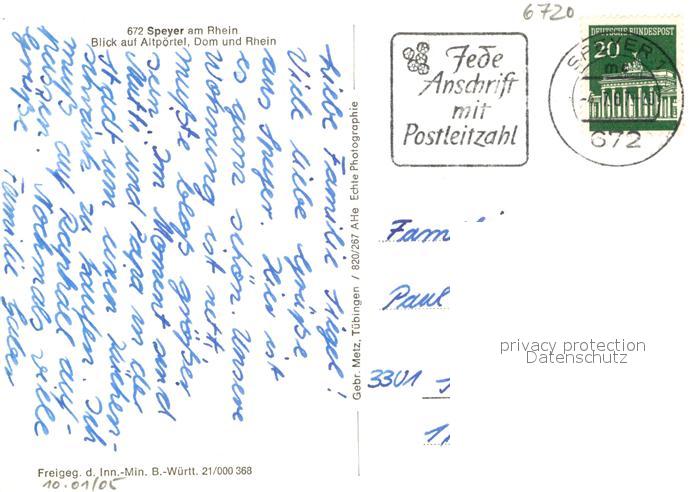 672 Speyer am Rhein
Blick auf Altpörtel, Dom und Rhein
Liebe Familie Higel!
Viele liebe Grüße
aus Speyer. Hier ist
es ganz schön. Unsere
Wohnung ist nett
müßte bloß größer
sein. Im Moment sind
Mutti und Papa in der
Stadt um einen Küchen-
schrank zu kaufen. Ich
muß auf Raphael auf-
passen. Nochmals viele
Grüße
Familie
Freigeg. d. Inn.-Min. B.-Württ. 21/000 368
10.01/05
Gebr. Metz, Tübingen / 820/267 AHe Echte Photographie
6720
Jede
Anschrift
mit
Postleitzahl
DEUTSCHE BUNDESPOST
20
SPEYER 1
672
Fam
Paul
3301
privacy protection
Datenschutz